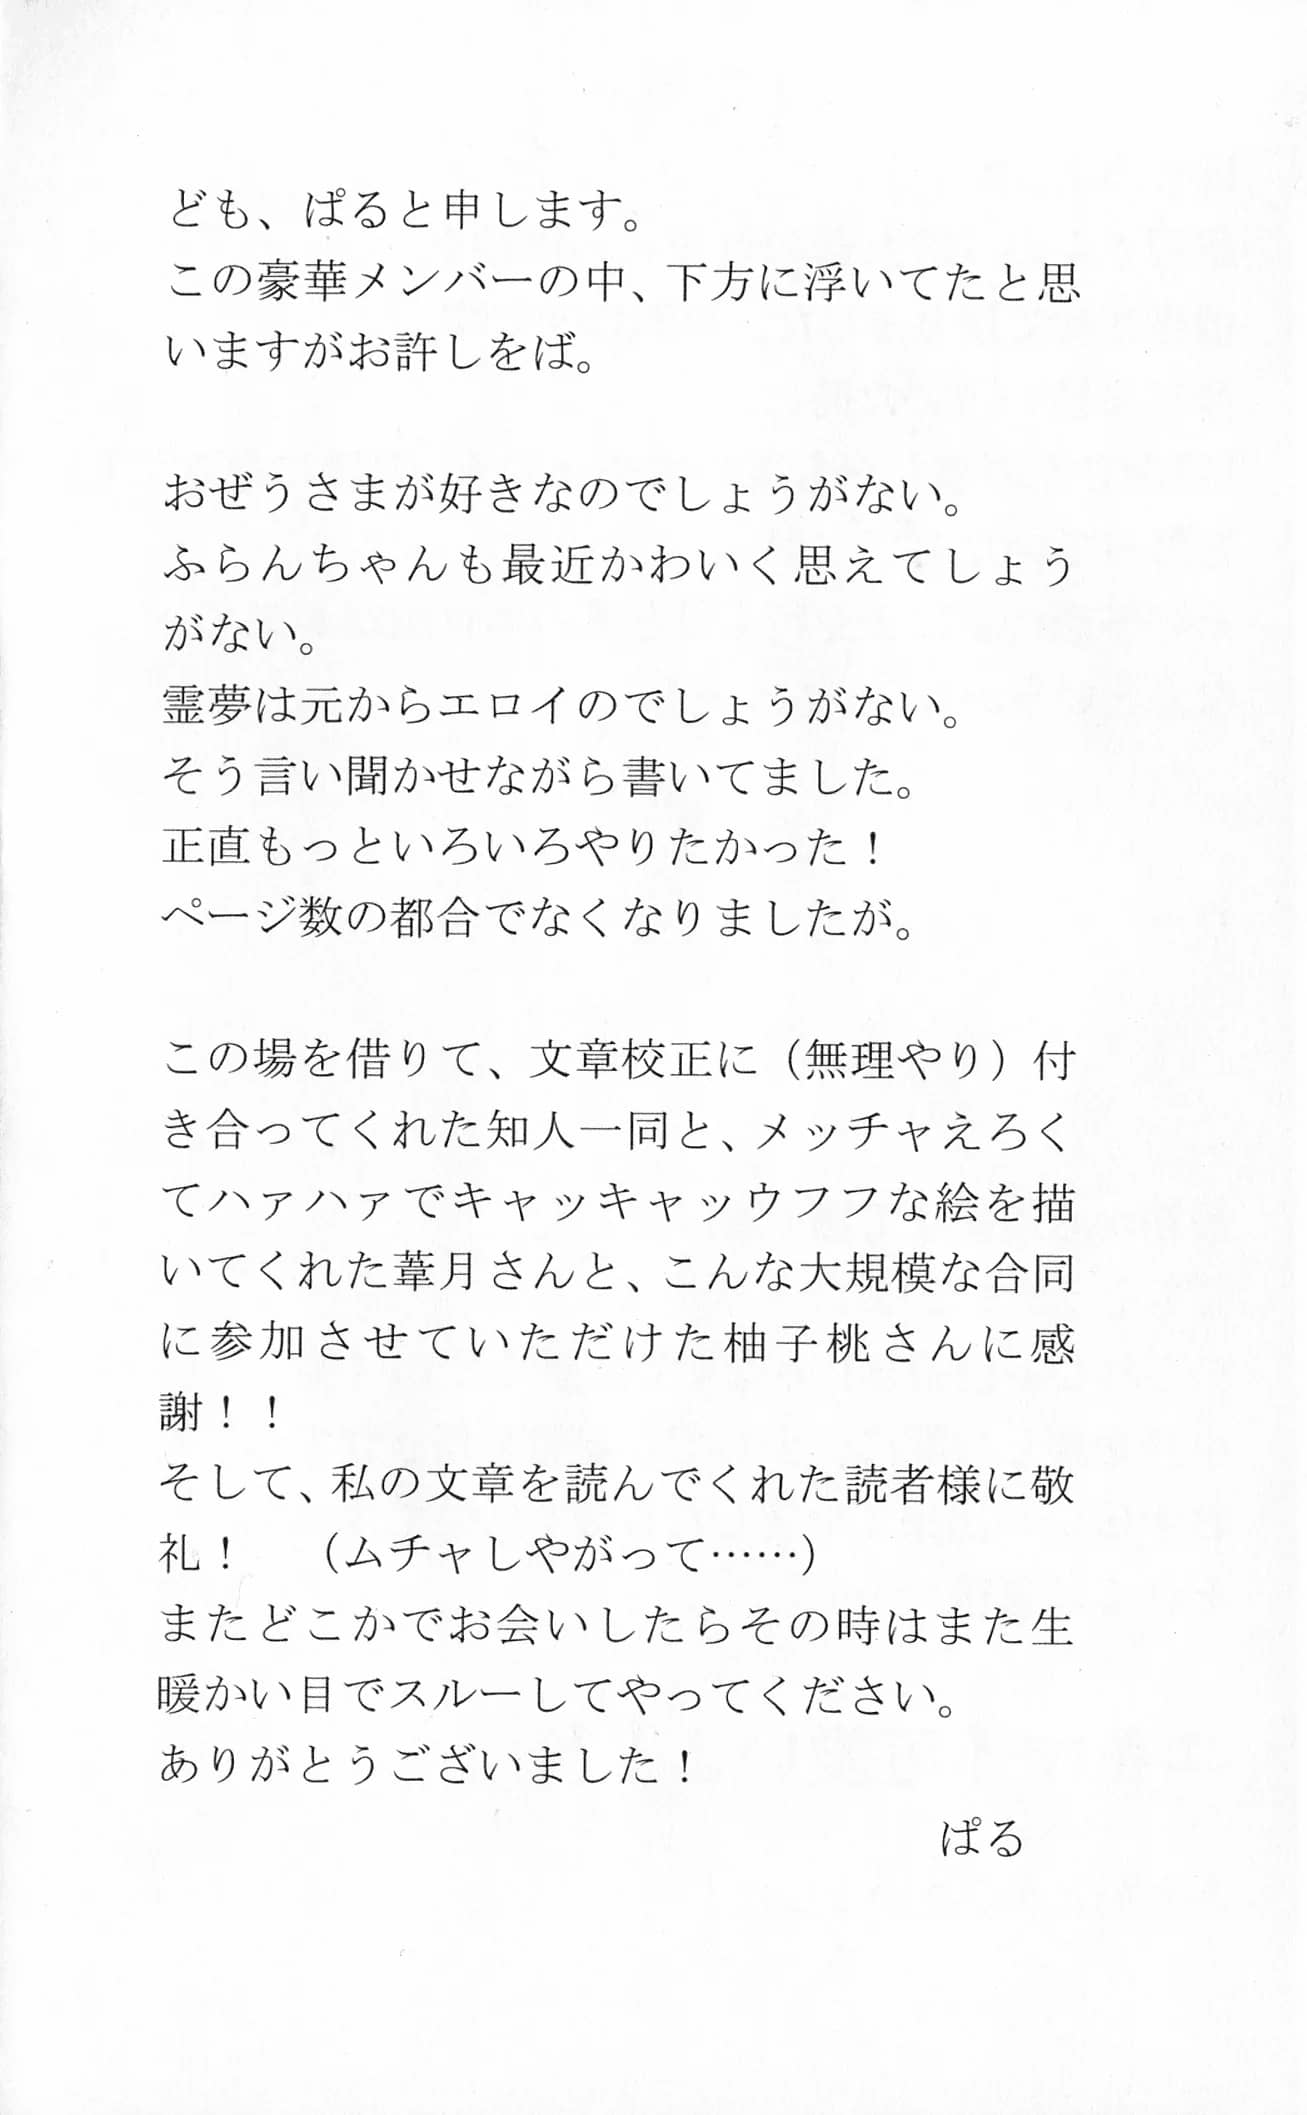 ども、ぱると申します。
この豪華メンバーの中、下方に浮いてたと思
いますがお許しをば。
おぜうさまが好きなのでしょうがない。
ふらんちゃんも最近かわいく思えてしょう
がない。
霊夢は元からエロイのでしょうがない。
そう言い聞かせながら書いてました。
正直もっといろいろやりたかった！
ページ数の都合でなくなりましたが。
この場を借りて、文章校正に（無理やり）付
き合ってくれた知人一同と、メッチャえろく
てハァハァでキャッキャッウフフな絵を描
いてくれた葦月さんと、こんな大規模な合同
に参加させていただけた柚子桃さんに感
謝！！
そして、私の文章を読んでくれた読者様に敬
礼！　（ムチャしやがって……）
またどこかでお会いしたらその時はまた生
暖かい目でスルーしてやってください。
ありがとうございました！
ぱる